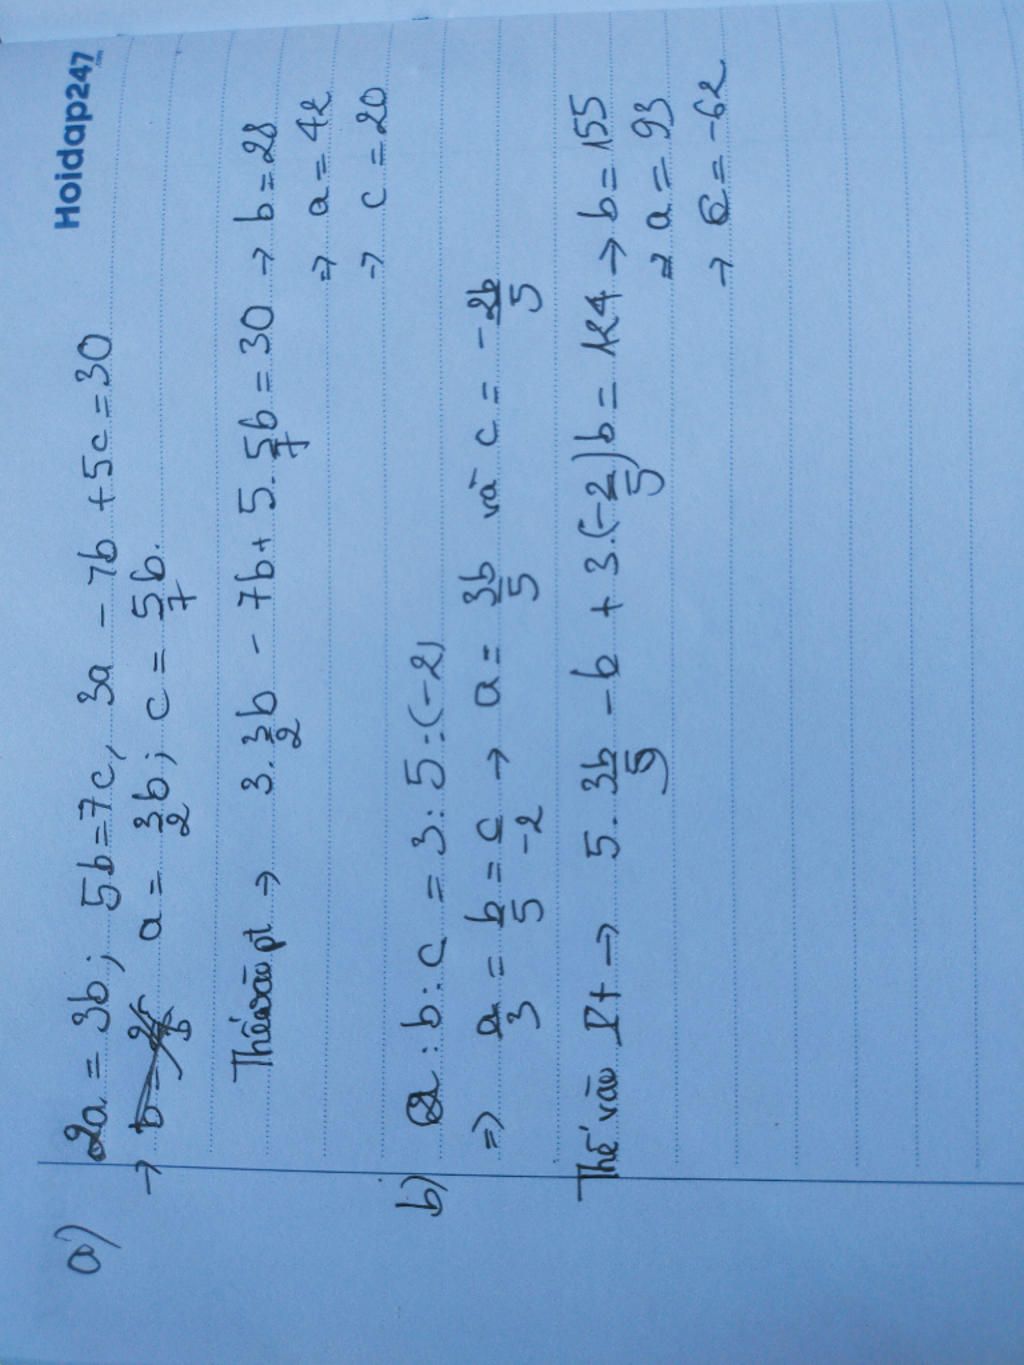 Hoidap247
.com
a) 2a = 3b; 5b=7c, 3a - 7b +5c=30
→ a = 3b/2; c = 5b/7.
Thế vào pt → 3. 3b/2 - 7b + 5. 5b/7 = 30 → b=28
→ a = 42
→ c = 20
b) a : b : c = 3 : 5 : (-2)
=> a/3 = b/5 = c/-2 → a = 3b/5 và c = -2b/5
Thế vào Pt → 5. 3b/5 - b + 3.(-2/5)b = 124 → b = 155
→ a = 93
→ c = -62